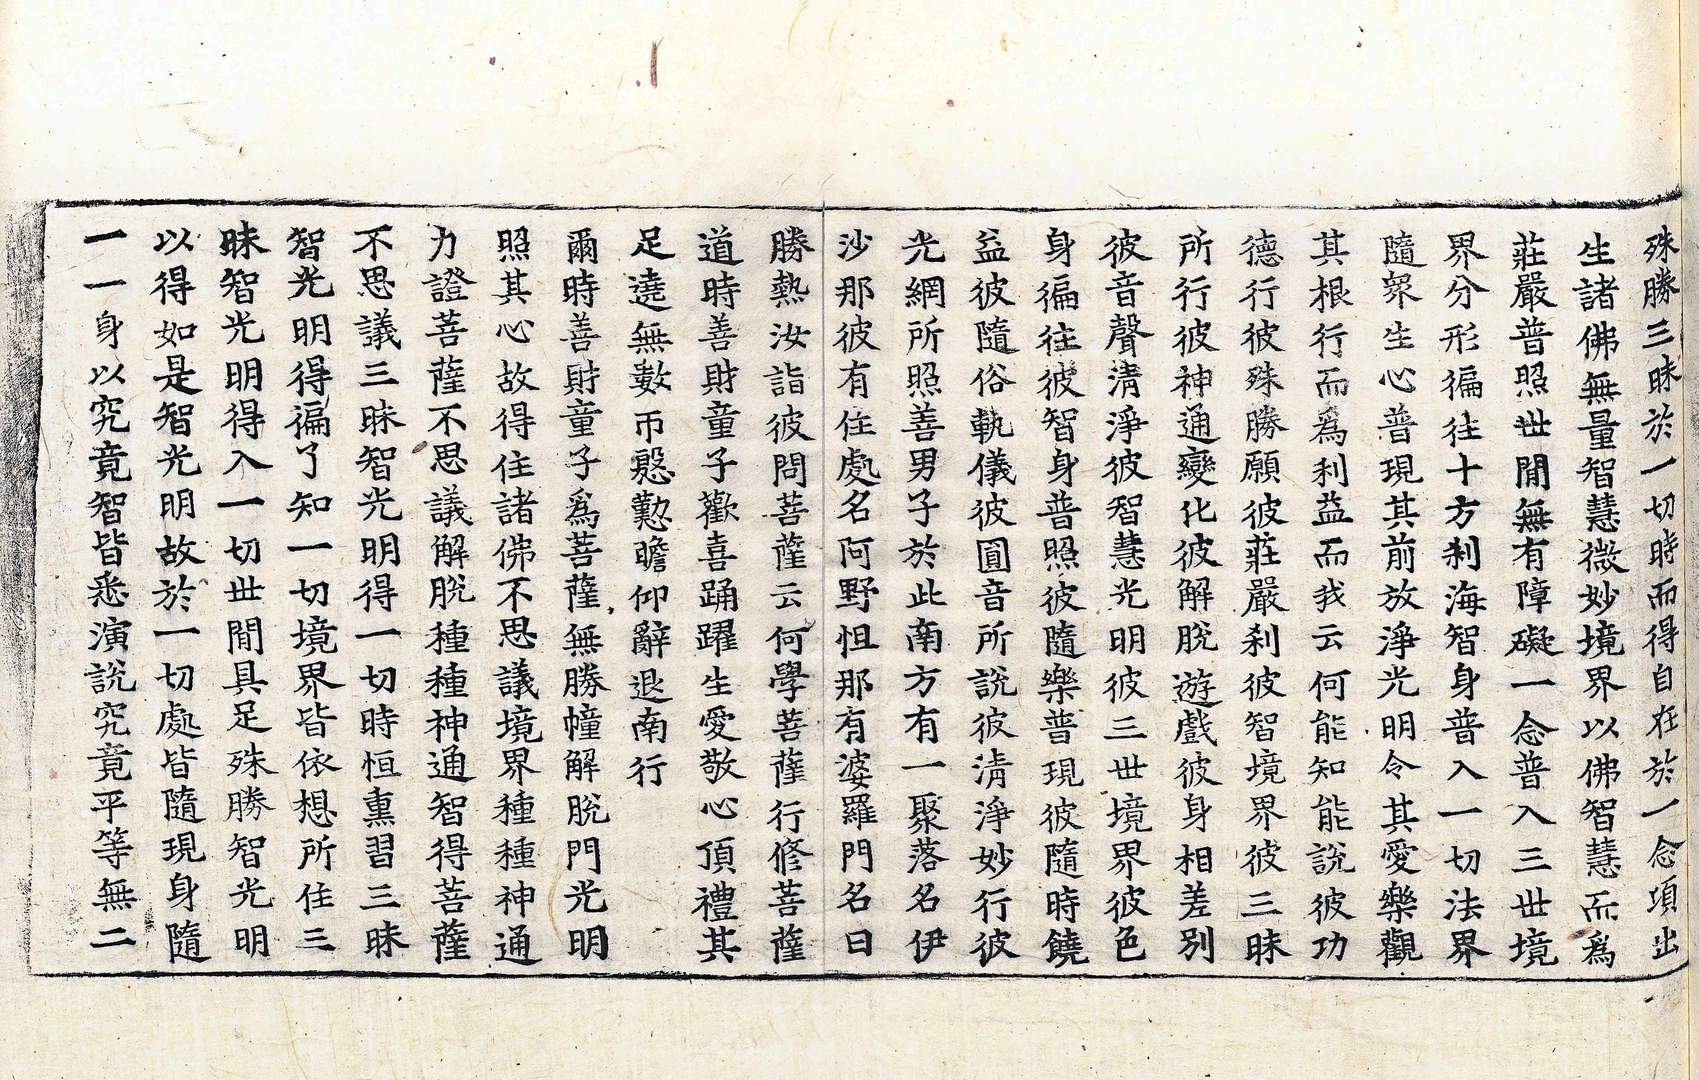 殊勝三昧於一切時而得自在於一念頃出
生諸佛無量智慧微妙境界以佛智慧而爲
莊嚴普照世閒無有障礙一念普入三世境
界分形徧往十方刹海智身普入一切法界
隨衆生心普現其前放淨光明令其愛樂觀
其根行而爲利益而我云何能知能說彼功
德行彼殊勝願彼莊嚴刹彼智境界彼三昧
所行彼神通變化彼解脫遊戲彼身相差別
彼音聲淸淨彼智慧光明彼三世境界彼色
身徧往彼智身普照彼隨樂普現彼隨時饒
益彼隨俗軌儀彼圓音所說彼淸淨妙行彼
光網所照善男子於此南方有一聚落名伊
沙那彼有住處名阿野怛那有婆羅門名曰
勝熱汝詣彼問菩薩云何學菩薩行修菩薩
道時善財童子歡喜踊躍生愛敬心頂禮其
足遶無數帀慇懃瞻仰辭退南行
爾時善財童子爲菩薩無勝幢解脫門光明
照其心故得住諸佛不思議境界種種神通
力證菩薩不思議解脫種種神通智得菩薩
不思議三昧智光明得一切時恒熏習三昧
智光明得徧了知一切境界皆依想所住三
昧智光明得入一切世閒具足殊勝智光明
以得如是智光明故於一切處皆隨現身隨
一一身以究竟智皆悉演說究竟平等無二